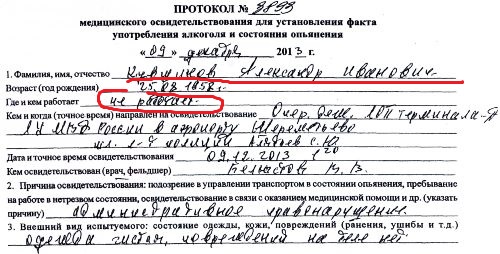 ПРОТОКОЛ № 3893
медицинского освидетельствования для установления факта
употребления алкоголя и состояния опьянения
« 09 » декабря 2013 г.
1. Фамилия, имя, отчество Александр Иванович
Возраст (год рождения) 25.08.1958г.
Где и кем работает не работает
Кем и когда (точное время) направлен на освидетельствование Опер. деж. терминала
ЛУ МВД России в аэропорту Шереметьево
мл. л-т полиции С.Ю.
Дата и точное время освидетельствования 09.12.2013 1 20
Кем освидетельствован (врач, фельдшер) В.В.
2. Причина освидетельствования: подозрение в управлении транспортом в состоянии опьянения, пребывание
на работе в нетрезвом состоянии, освидетельствование в связи с оказанием медицинской помощи и др. (указать
причину) административное правонарушение.
3. Внешний вид испытуемого: состояние одежды, кожи, повреждений (ранения, ушибы и т.д.)
одежда чистая, повреждений на теле нет.